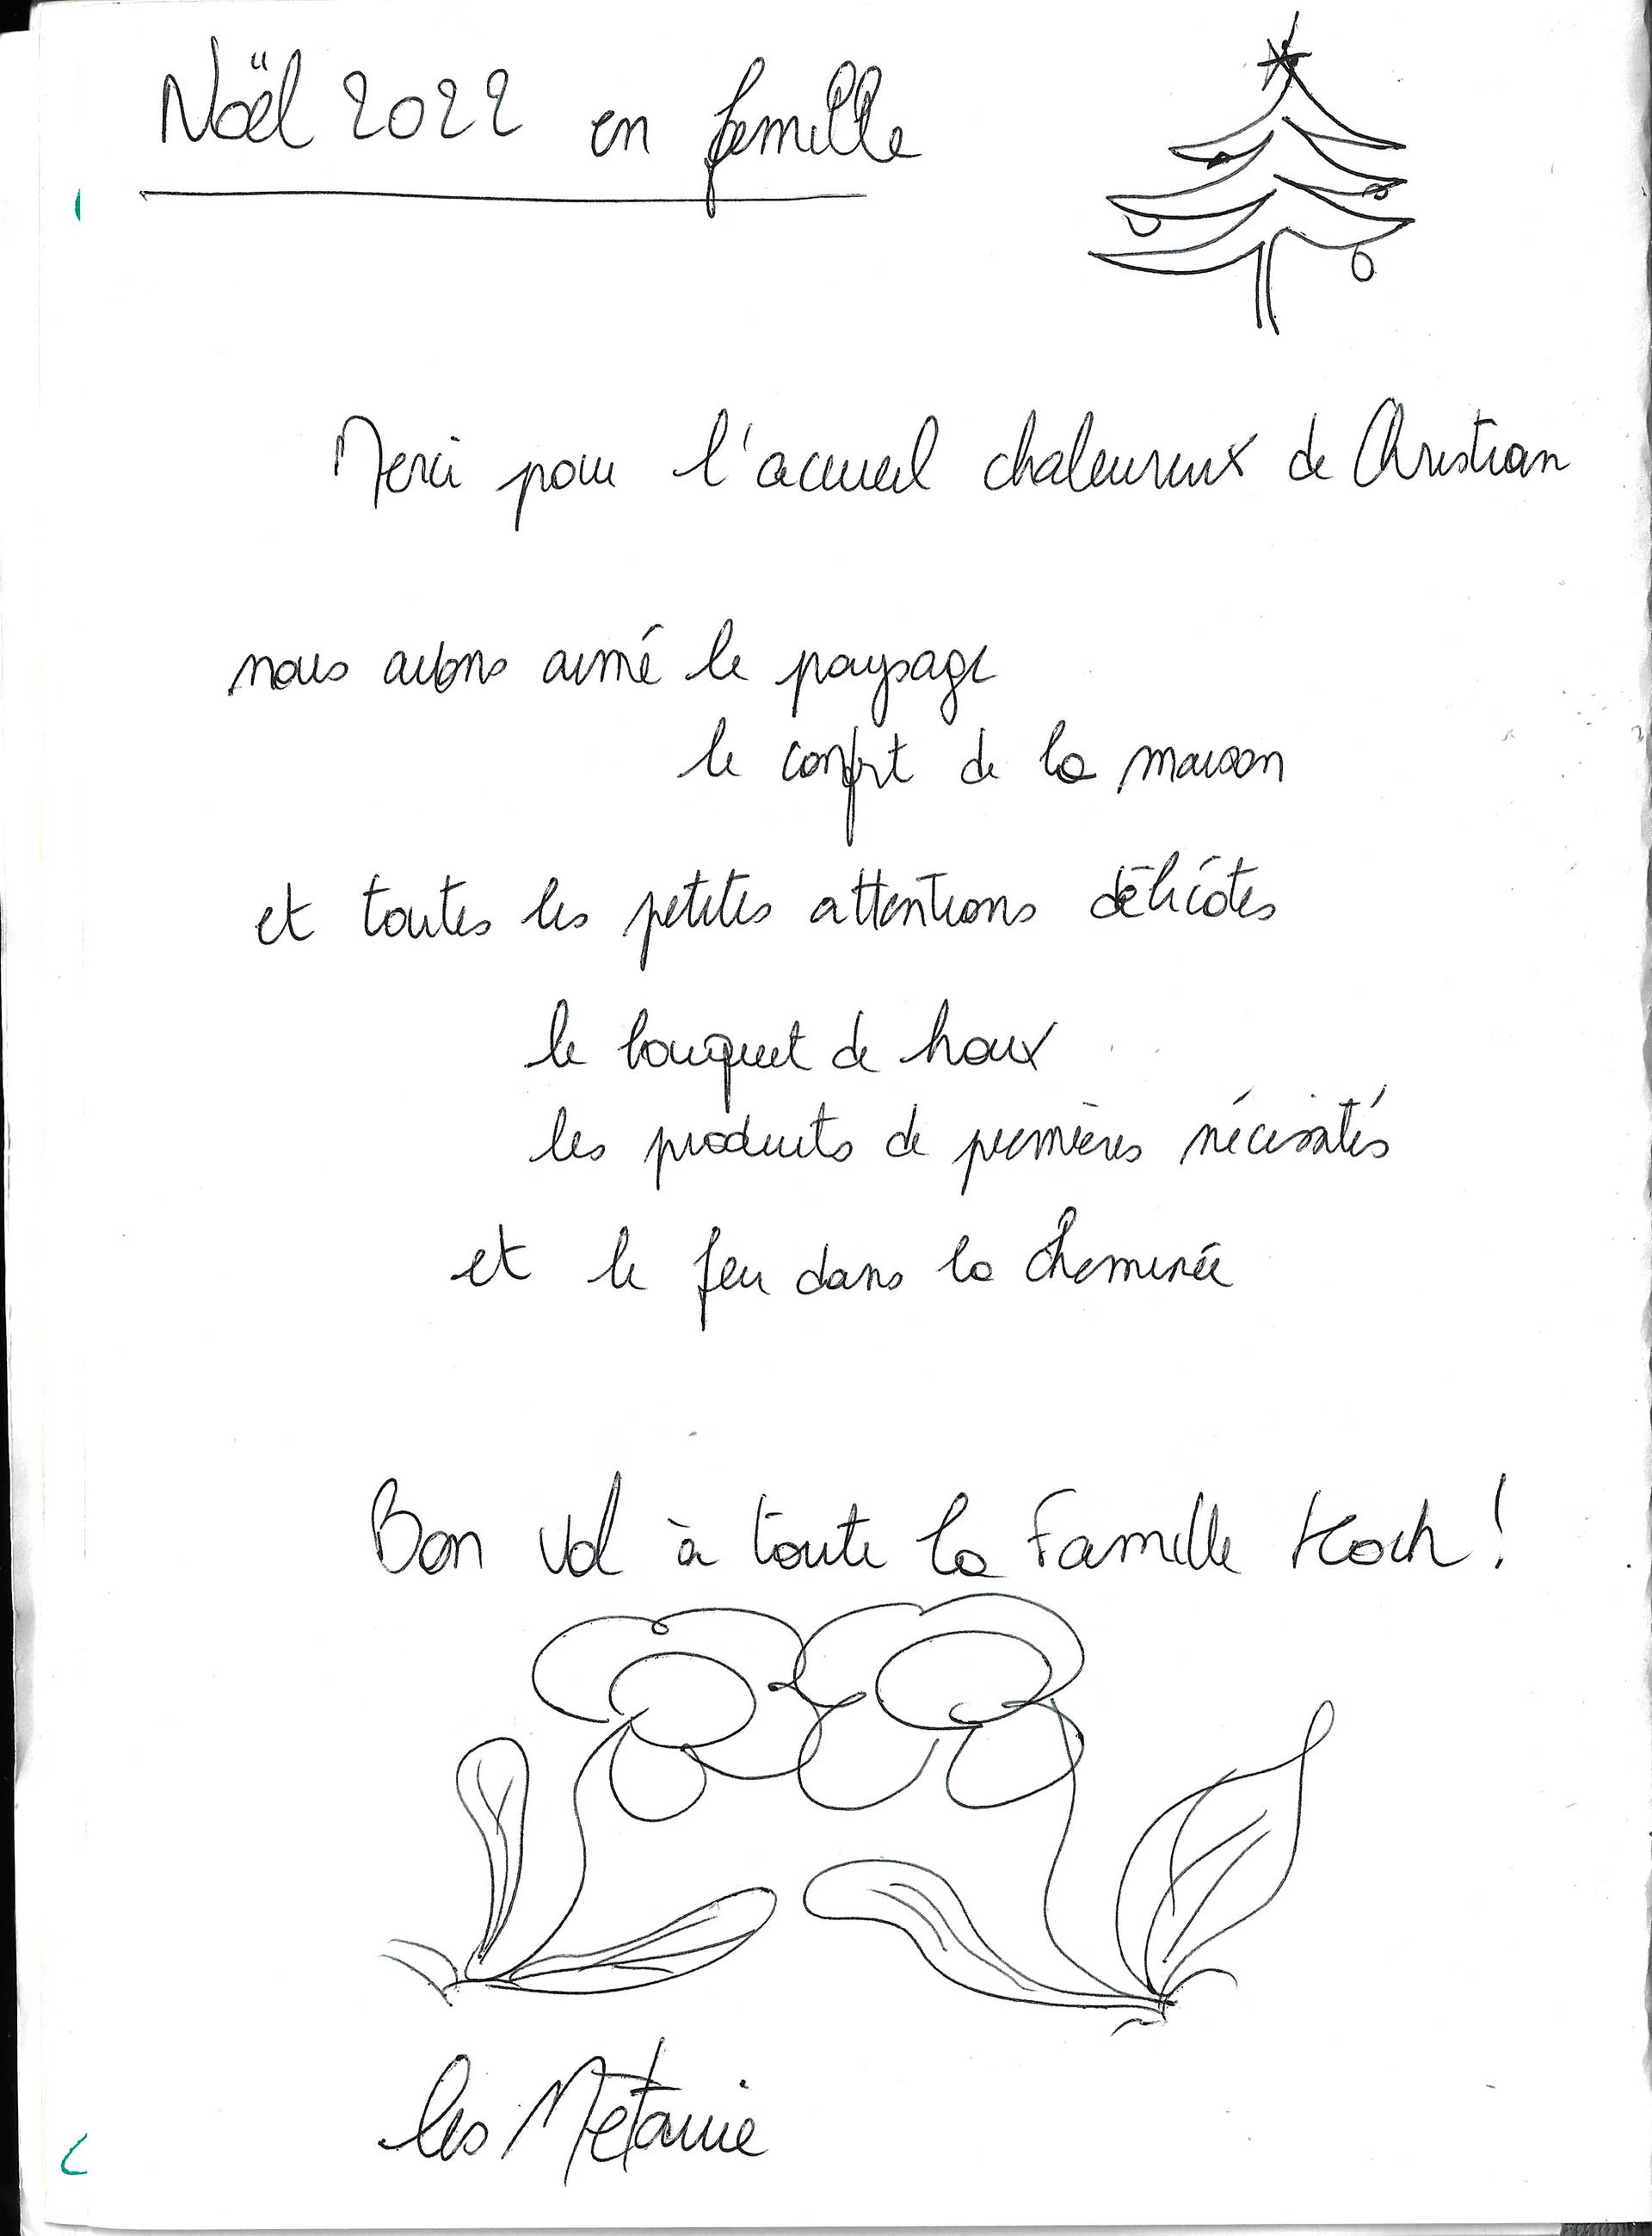 Noël 2022 en famille
Merci pour l'accueil chaleureux de Christian
nous avons aimé le paysage
le confort de la maison
et toutes les petites attentions délicates
le bouquet de houx
les produits de premières nécessités
et le feu dans la cheminée
Bon vol à toute la Famille Koch !
les Métairie